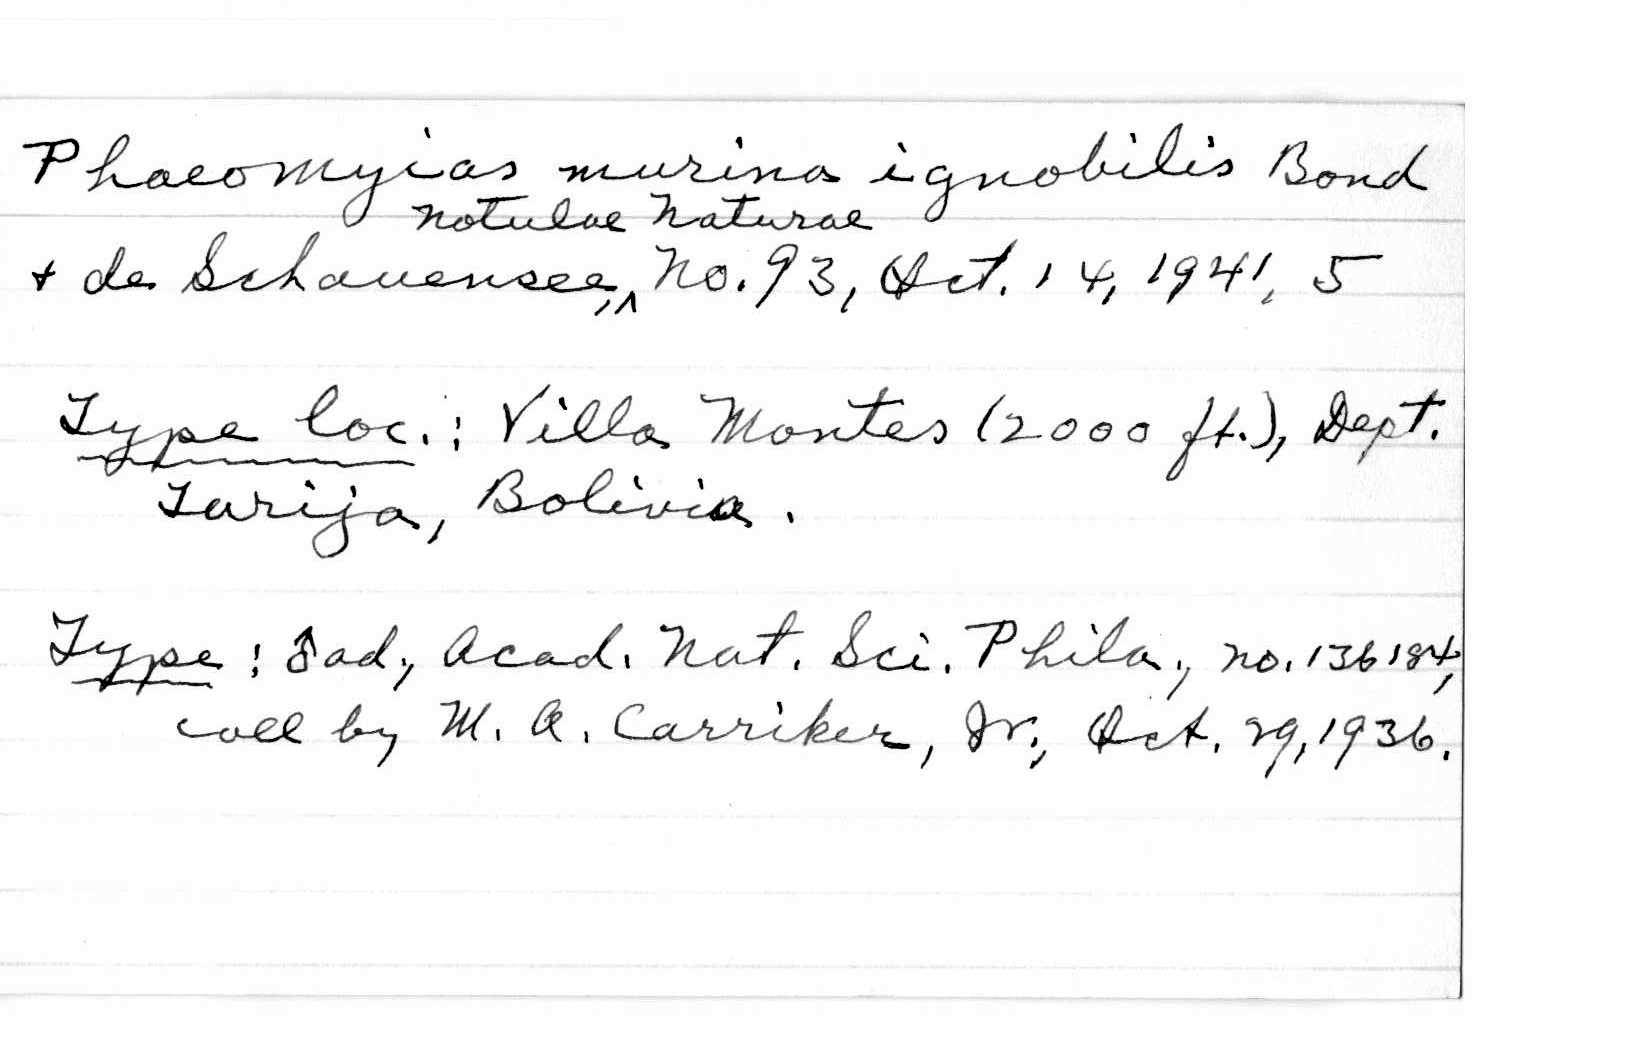 Phaeomyias murina ignobilis Bond
Notulae Naturae
+ de Schauensee, ^ No. 93, Oct. 14, 1941, 5
Type loc.: Villa Montes (2000 ft.), Dept.
Tarija, Bolivia.
Type: ♂ad., Acad. Nat. Sci. Phila., no. 136184,
coll by M. A. Carriker, Jr., Oct. 29, 1936.